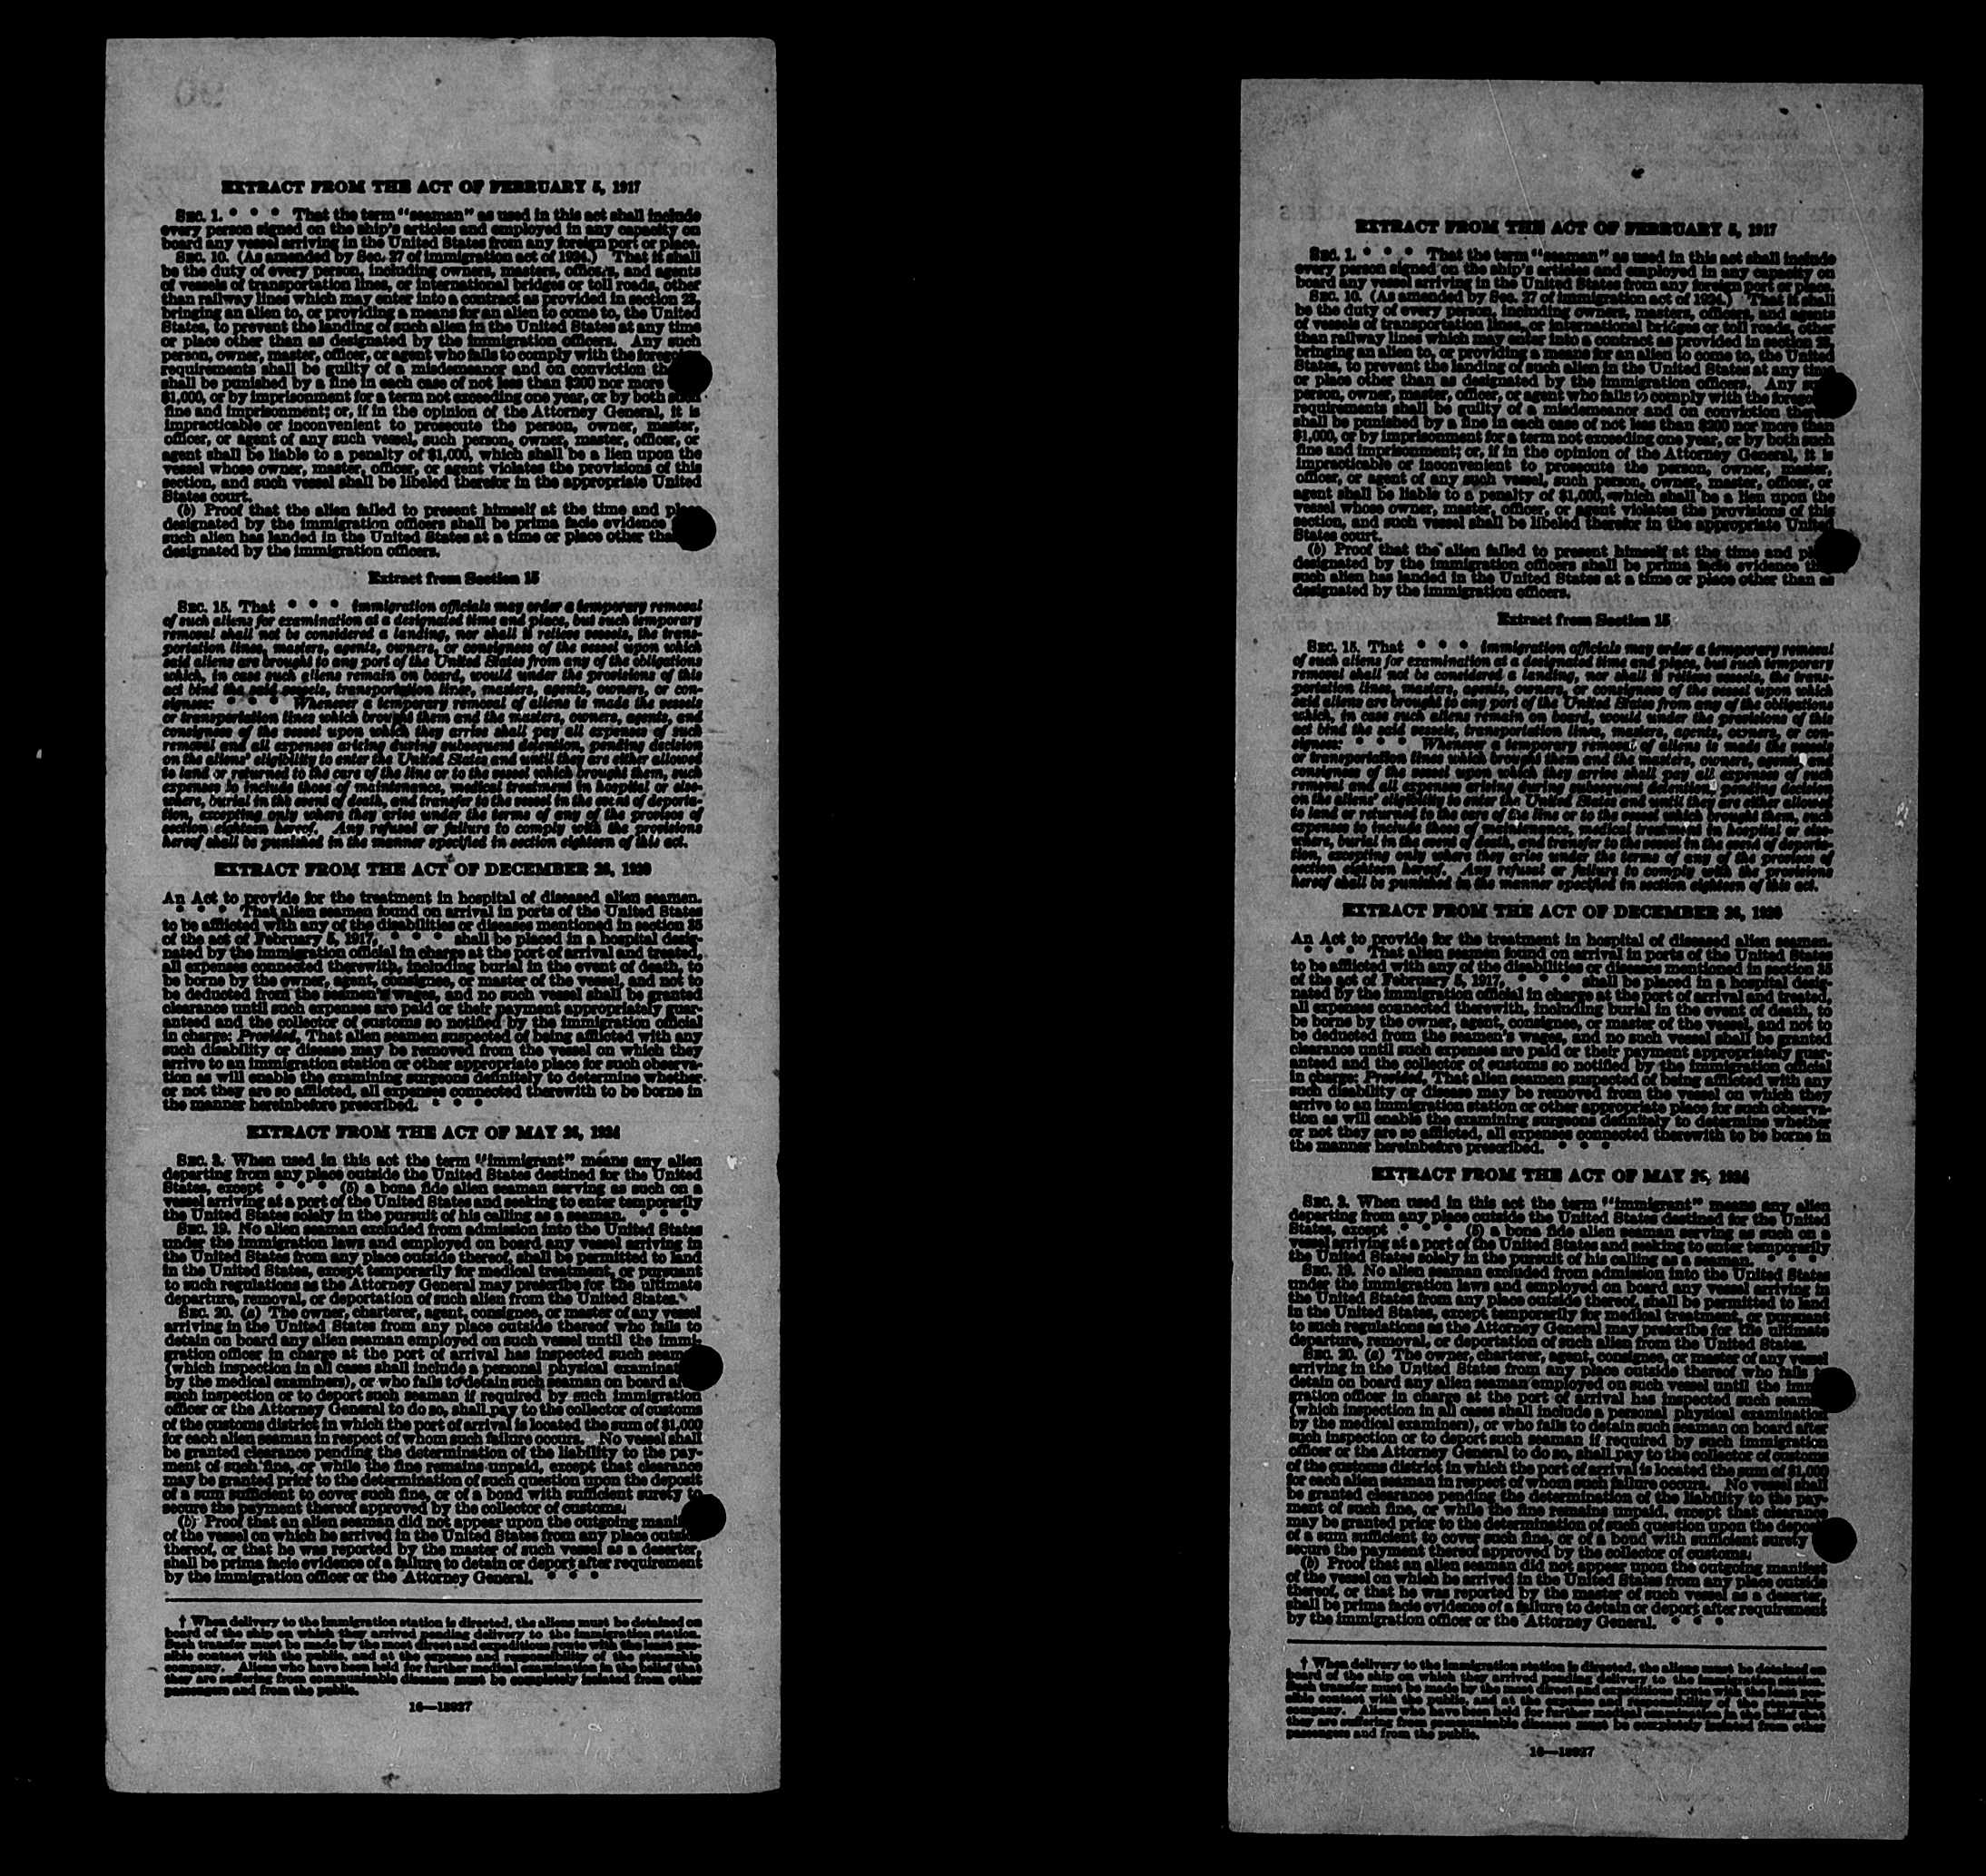 EXTRACT FROM THE ACT OF FEBRUARY 5, 1917
SEC. 1. * * * That the term "seaman" as used in this act shall include
every person signed on the ship's articles and employed in any capacity on
board any vessel arriving in the United States from any foreign port or place.
SEC. 10. (As amended by Sec. 27 of immigration act of 1924.) That it shall
be the duty of every person, including owners, masters, officers, and agents
of vessels of transportation lines, or international bridges or toll roads, other
than railway lines which may enter into a contract as provided in section 23,
bringing an alien to, or providing a means for an alien to come to, the United
States, to prevent the landing of such alien in the United States at any time
or place other than as designated by the immigration officers. Any such
person, owner, master, officer, or agent who fails to comply with the
requirements shall be guilty of a misdemeanor and on conviction
shall be punished by a fine in each case of not less than $200 nor more
$1,000, or by imprisonment for a term not exceeding one year, or by both such
fine and imprisonment; or, if in the opinion of the Attorney General, it is
impracticable or inconvenient to prosecute the person, owner, master,
officer, or agent of any such vessel, such person, owner, master, officer, or
agent shall be liable to a penalty of $1,000, which shall be a lien upon the
vessel whose owner, master, officer, or agent violates the provisions of this
section, and such vessel shall be libeled therefor in the appropriate United
States court.
(b) Proof that the alien failed to present himself at the time and
designated by the immigration officers shall be prima facie evidence
such alien has landed in the United States at a time or place other
designated by the immigration officers.
Extract from Section 15
SEC. 15. That * * * immigration officials may order a temporary removal
of such aliens for examination at a designated time and place, but such temporary
removal shall not be considered a landing, nor shall it relieve vessels, the trans-
portation lines, masters, agents, owners, or consignees of the vessel upon which
said aliens are brought to any port of the United States from any of the obligations
which, in case such aliens remain on board, would under the provisions of this
act bind the said vessels, transportation lines, masters, agents, owners, or con-
signees: * * * Whenever a temporary removal of aliens is made the vessels
or transportation lines which brought them and the masters, owners, agents, and
consignees of the vessel upon which they arrive shall pay all expenses of such
removal and all expenses arising during subsequent detention, pending decision
on the aliens' eligibility to enter the United States and until they are either allowed
to land or returned to the care of the line or to the vessel which brought them, such
expenses to include those of maintenance, medical treatment in hospital or else-
where, burial in the event of death, and transfer to the vessel in the event of deporta-
tion, excepting only where they arise under the terms of any of the provisos of
section eighteen hereof. Any refusal or failure to comply with the provisions
hereof shall be punished in the manner specified in section eighteen of this act.
EXTRACT FROM THE ACT OF DECEMBER 26, 1920
An Act to provide for the treatment in hospital of diseased alien seamen.
* * * That alien seamen found on arrival in ports of the United States
to be afflicted with any of the disabilities or diseases mentioned in section 35
of the act of February 5, 1917, * * * shall be placed in a hospital desig-
nated by the immigration official in charge at the port of arrival and treated,
all expenses connected therewith, including burial in the event of death, to
be borne by the owner, agent, consignee, or master of the vessel, and not to
be deducted from the seamen's wages, and no such vessel shall be granted
clearance until such expenses are paid or their payment appropriately guar-
anteed and the collector of customs so notified by the immigration official
in charge: Provided, That alien seamen suspected of being afflicted with any
such disability or disease may be removed from the vessel on which they
arrive to an immigration station or other appropriate place for such observa-
tion as will enable the examining surgeons definitely to determine whether
or not they are so afflicted, all expenses connected therewith to be borne in
the manner hereinbefore prescribed. * * *
EXTRACT FROM THE ACT OF MAY 26, 1924
SEC. 3. When used in this act the term "immigrant" means any alien
departing from any place outside the United States destined for the United
States, except * * * (5) a bona fide alien seaman serving as such on a
vessel arriving at a port of the United States and seeking to enter temporarily
the United States solely in the pursuit of his calling as a seaman. * * *
SEC. 19. No alien seaman excluded from admission into the United States
under the immigration laws and employed on board any vessel arriving in
the United States from any place outside thereof, shall be permitted to land
in the United States, except temporarily for medical treatment, or pursuant
to such regulations as the Attorney General may prescribe for the ultimate
departure, removal, or deportation of such alien from the United States.
SEC. 20. (a) The owner, charterer, agent, consignee, or master of any vessel
arriving in the United States from any place outside thereof who fails to
detain on board any alien seaman employed on such vessel until the immi-
gration officer in charge at the port of arrival has inspected such
(which inspection in all cases shall include a personal physical
by the medical examiners), or who fails to detain such seaman on board
such inspection or to deport such seaman if required by such immigration
officer or the Attorney General to do so, shall pay to the collector of customs
of the customs district in which the port of arrival is located the sum of $1,000
for each alien seaman in respect of whom such failure occurs. No vessel shall
be granted clearance pending the determination of the liability to the pay-
ment of such fine, or while the fine remains unpaid, except that clearance
may be granted prior to the determination of such question upon the deposit
of a sum sufficient to cover such fine, or of a bond with sufficient surety to
secure the payment thereof approved by the collector of customs.
(b) Proof that an alien seaman did not appear upon the outgoing
of the vessel on which he arrived in the United States from any place
thereof, or that he was reported by the master of such vessel as a deserter,
shall be prima facie evidence of a failure to detain or deport after requirement
by the immigration officer or the Attorney General. * * *
† When delivery to the immigration station is directed, the aliens must be detained on
board of the ship on which they arrived pending delivery to the immigration station.
Such transfer must be made by the most direct and expeditious route with the least pos-
sible contact with the public, and at the expense and responsibility of the steamship
company. Aliens who have been held for further medical examination in the belief that
they are suffering from communicable diseases must be completely isolated from other
passengers and from the public.
16—13927
EXTRACT FROM THE ACT OF FEBRUARY 5, 1917
SEC. 1. * * * That the term "seaman" as used in this act shall include
every person signed on the ship's articles and employed in any capacity on
board any vessel arriving in the United States from any foreign port or place.
SEC. 10. (As amended by Sec. 27 of immigration act of 1924.) That it shall
be the duty of every person, including owners, masters, officers, and agents
of vessels of transportation lines, or international bridges or toll roads, other
than railway lines which may enter into a contract as provided in section 23,
bringing an alien to, or providing a means for an alien to come to, the United
States, to prevent the landing of such alien in the United States at any time
or place other than as designated by the immigration officers. Any
person, owner, master, officer, or agent who fails to comply with the
requirements shall be guilty of a misdemeanor and on conviction
shall be punished by a fine in each case of not less than $200 nor more than
$1,000, or by imprisonment for a term not exceeding one year, or by both such
fine and imprisonment; or, if in the opinion of the Attorney General, it is
impracticable or inconvenient to prosecute the person, owner, master,
officer, or agent of any such vessel, such person, owner, master, officer, or
agent shall be liable to a penalty of $1,000, which shall be a lien upon the
vessel whose owner, master, officer, or agent violates the provisions of this
section, and such vessel shall be libeled therefor in the appropriate United
States court.
(b) Proof that the alien failed to present himself at the time and
designated by the immigration officers shall be prima facie evidence
such alien has landed in the United States at a time or place other than as
designated by the immigration officers.
Extract from Section 15
SEC. 15. That * * * immigration officials may order a temporary removal
of such aliens for examination at a designated time and place, but such temporary
removal shall not be considered a landing, nor shall it relieve vessels, the trans-
portation lines, masters, agents, owners, or consignees of the vessel upon which
said aliens are brought to any port of the United States from any of the obligations
which, in case such aliens remain on board, would under the provisions of this
act bind the said vessels, transportation lines, masters, agents, owners, or con-
signees: * * * Whenever a temporary removal of aliens is made the vessels
or transportation lines which brought them and the masters, owners, agents, and
consignees of the vessel upon which they arrive shall pay all expenses of such
removal and all expenses arising during subsequent detention, pending decision
on the aliens' eligibility to enter the United States and until they are either allowed
to land or returned to the care of the line or to the vessel which brought them, such
expenses to include those of maintenance, medical treatment in hospital or else-
where, burial in the event of death, and transfer to the vessel in the event of deporta-
tion, excepting only where they arise under the terms of any of the provisos of
section eighteen hereof. Any refusal or failure to comply with the provisions
hereof shall be punished in the manner specified in section eighteen of this act.
EXTRACT FROM THE ACT OF DECEMBER 26, 1920
An Act to provide for the treatment in hospital of diseased alien seamen.
* * * That alien seamen found on arrival in ports of the United States
to be afflicted with any of the disabilities or diseases mentioned in section 35
of the act of February 5, 1917, * * * shall be placed in a hospital desig-
nated by the immigration official in charge at the port of arrival and treated,
all expenses connected therewith, including burial in the event of death, to
be borne by the owner, agent, consignee, or master of the vessel, and not to
be deducted from the seamen's wages, and no such vessel shall be granted
clearance until such expenses are paid or their payment appropriately guar-
anteed and the collector of customs so notified by the immigration official
in charge: Provided, That alien seamen suspected of being afflicted with any
such disability or disease may be removed from the vessel on which they
arrive to an immigration station or other appropriate place for such observa-
tion as will enable the examining surgeons definitely to determine whether
or not they are so afflicted, all expenses connected therewith to be borne in
the manner hereinbefore prescribed. * * *
EXTRACT FROM THE ACT OF MAY 26, 1924
SEC. 3. When used in this act the term "immigrant" means any alien
departing from any place outside the United States destined for the United
States, except * * * (5) a bona fide alien seaman serving as such on a
vessel arriving at a port of the United States and seeking to enter temporarily
the United States solely in the pursuit of his calling as a seaman. * * *
SEC. 19. No alien seaman excluded from admission into the United States
under the immigration laws and employed on board any vessel arriving in
the United States from any place outside thereof, shall be permitted to land
in the United States, except temporarily for medical treatment, or pursuant
to such regulations as the Attorney General may prescribe for the ultimate
departure, removal, or deportation of such alien from the United States.
SEC. 20. (a) The owner, charterer, agent, consignee, or master of any vessel
arriving in the United States from any place outside thereof who fails
detain on board any alien seaman employed on such vessel until the
gration officer in charge at the port of arrival has inspected such
(which inspection in all cases shall include a personal physical examination
by the medical examiners), or who fails to detain such seaman on board after
such inspection or to deport such seaman if required by such immigration
officer or the Attorney General to do so, shall pay to the collector of customs
of the customs district in which the port of arrival is located the sum of $1,000
for each alien seaman in respect of whom such failure occurs. No vessel shall
be granted clearance pending the determination of the liability to the pay-
ment of such fine, or while the fine remains unpaid, except that clearance
may be granted prior to the determination of such question upon the
of a sum sufficient to cover such fine, or of a bond with sufficient surety
secure the payment thereof approved by the collector of customs.
(b) Proof that an alien seaman did not appear upon the outgoing manifest
of the vessel on which he arrived in the United States from any place outside
thereof, or that he was reported by the master of such vessel as a deserter,
shall be prima facie evidence of a failure to detain or deport after requirement
by the immigration officer or the Attorney General. * * *
† When delivery to the immigration station is directed, the aliens must be detained on
board of the ship on which they arrived pending delivery to the immigration station.
Such transfer must be made by the most direct and expeditious route with the least pos-
sible contact with the public, and at the expense and responsibility of the steamship
company. Aliens who have been held for further medical examination in the belief that
they are suffering from communicable diseases must be completely isolated from other
passengers and from the public.
16—13927